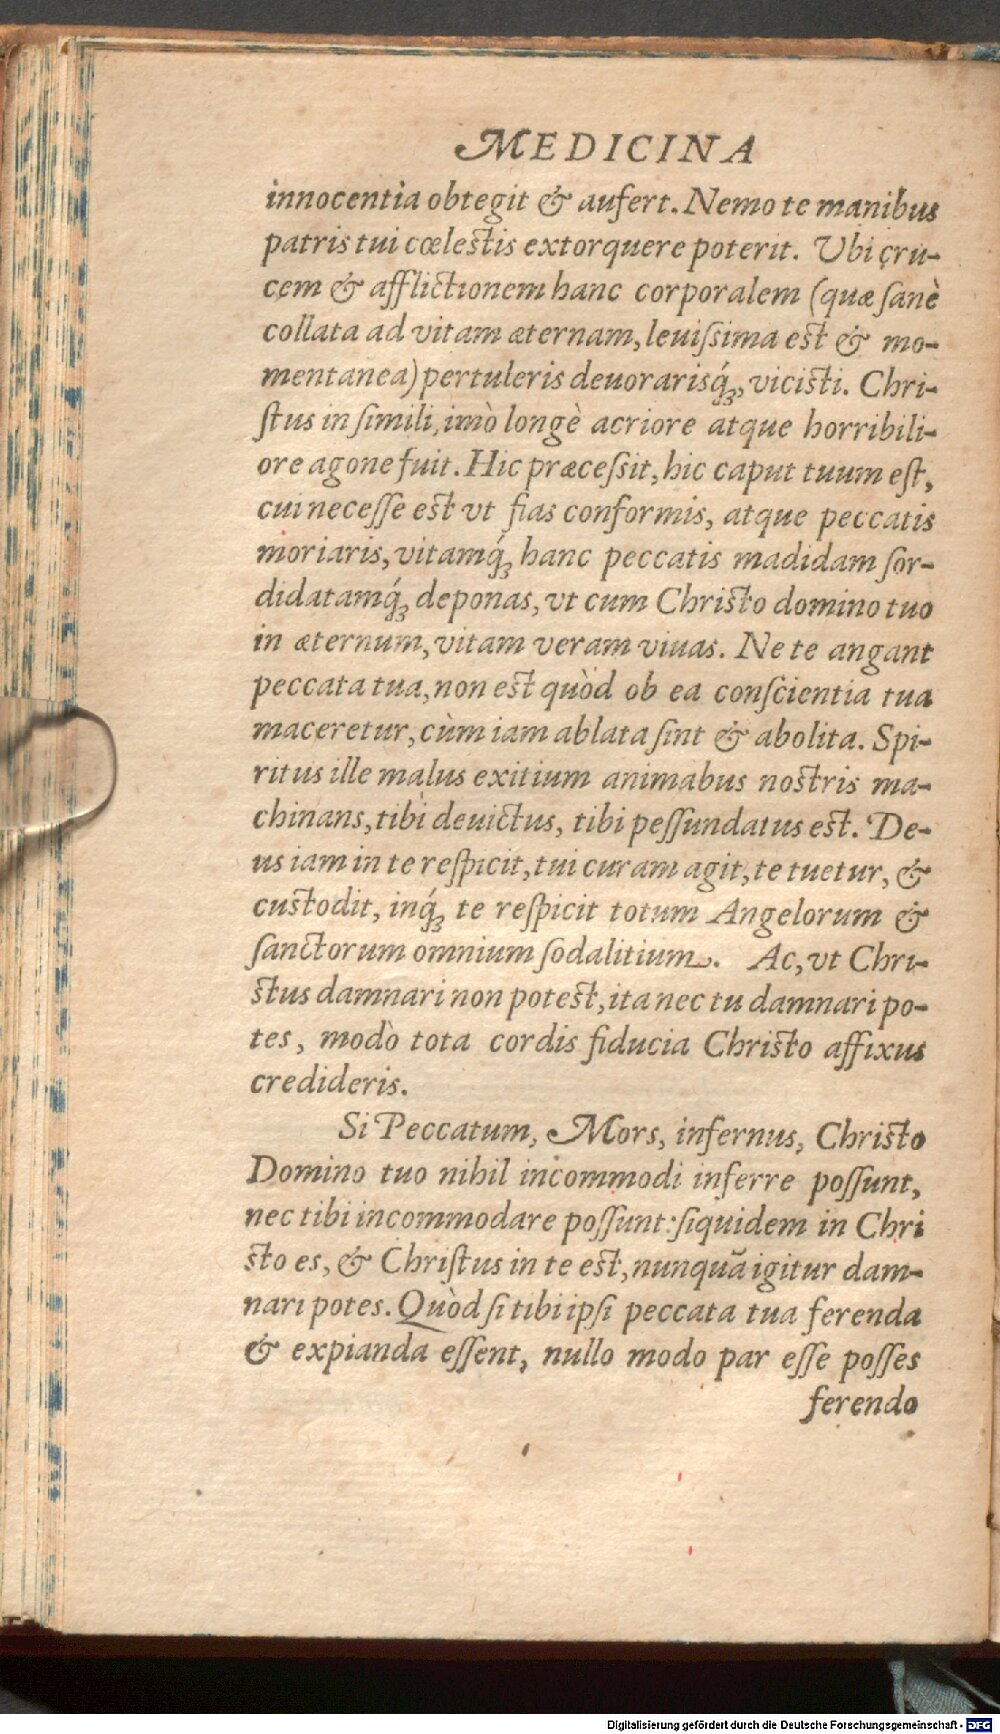 MEDICINA
innocentia obtegit & aufert. Nemo te manibus
patris tui cœlestis extorquere poterit. Vbi cru-
cem & afflictionem hanc corporalem (quæ sanè
collata ad vitam æternam, leuissima est & mo-
mentanea) pertuleris deuorarisq́ꝫ, vicisti. Chri-
stus in simili, imò longè acriore atque horribili-
ore agone fuit. Hic præcessit, hic caput tuum est,
cui necesse est vt fias conformis, atque peccatis
moriaris, vitamq́ꝫ hanc peccatis madidam sor-
didatamq́ꝫ deponas, vt cum Christo domino tuo
in æternum, vitam veram viuas. Ne te angant
peccata tua, non est quòd ob ea conscientia tua
maceretur, cùm iam ablata sint & abolita. Spi-
ritus ille malus exitium animabus nostris ma-
chinans, tibi deuictus, tibi pessundatus est. De-
us iam in te respicit, tui curam agit, te tuetur, &
custodit, inq́ꝫ te respicit totum Angelorum &
sanctorum omnium sodalitium. Ac, vt Chri-
stus damnari non potest, ita nec tu damnari po-
tes, modò tota cordis fiducia Christo affixus
credideris.
Si Peccatum, Mors, infernus, Christo
Domino tuo nihil incommodi inferre possunt,
nec tibi incommodare possunt: siquidem in Chri
sto es, & Christus in te est, nunquã igitur dam-
nari potes. Quòd si tibi ipsi peccata tua ferenda
& expianda essent, nullo modo par esse posses
ferendo
Digitalisierung gefördert durch die Deutsche Forschungsgemeinschaft - DFG